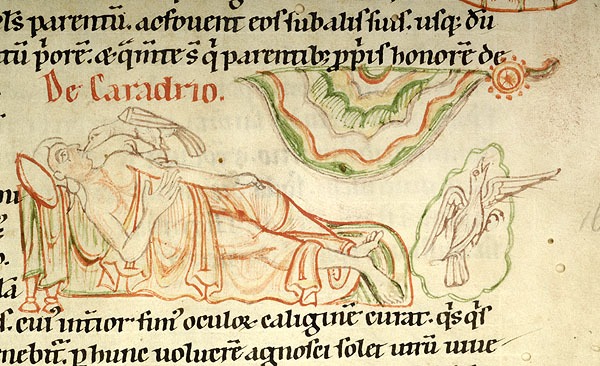 parentū. ac fovent eos sub alis suis. usq; du
tū p̄orē. & q̄m te s̄ q̄ parentib; p̄p̄is honorē de
De Caradrio.
ni
e
lā
s. cuī int̄ior fim' oculoꝝ caliginē curat. q̄s q̄s
nebit̄. p hunc volucrē agnosci solet utrū vive